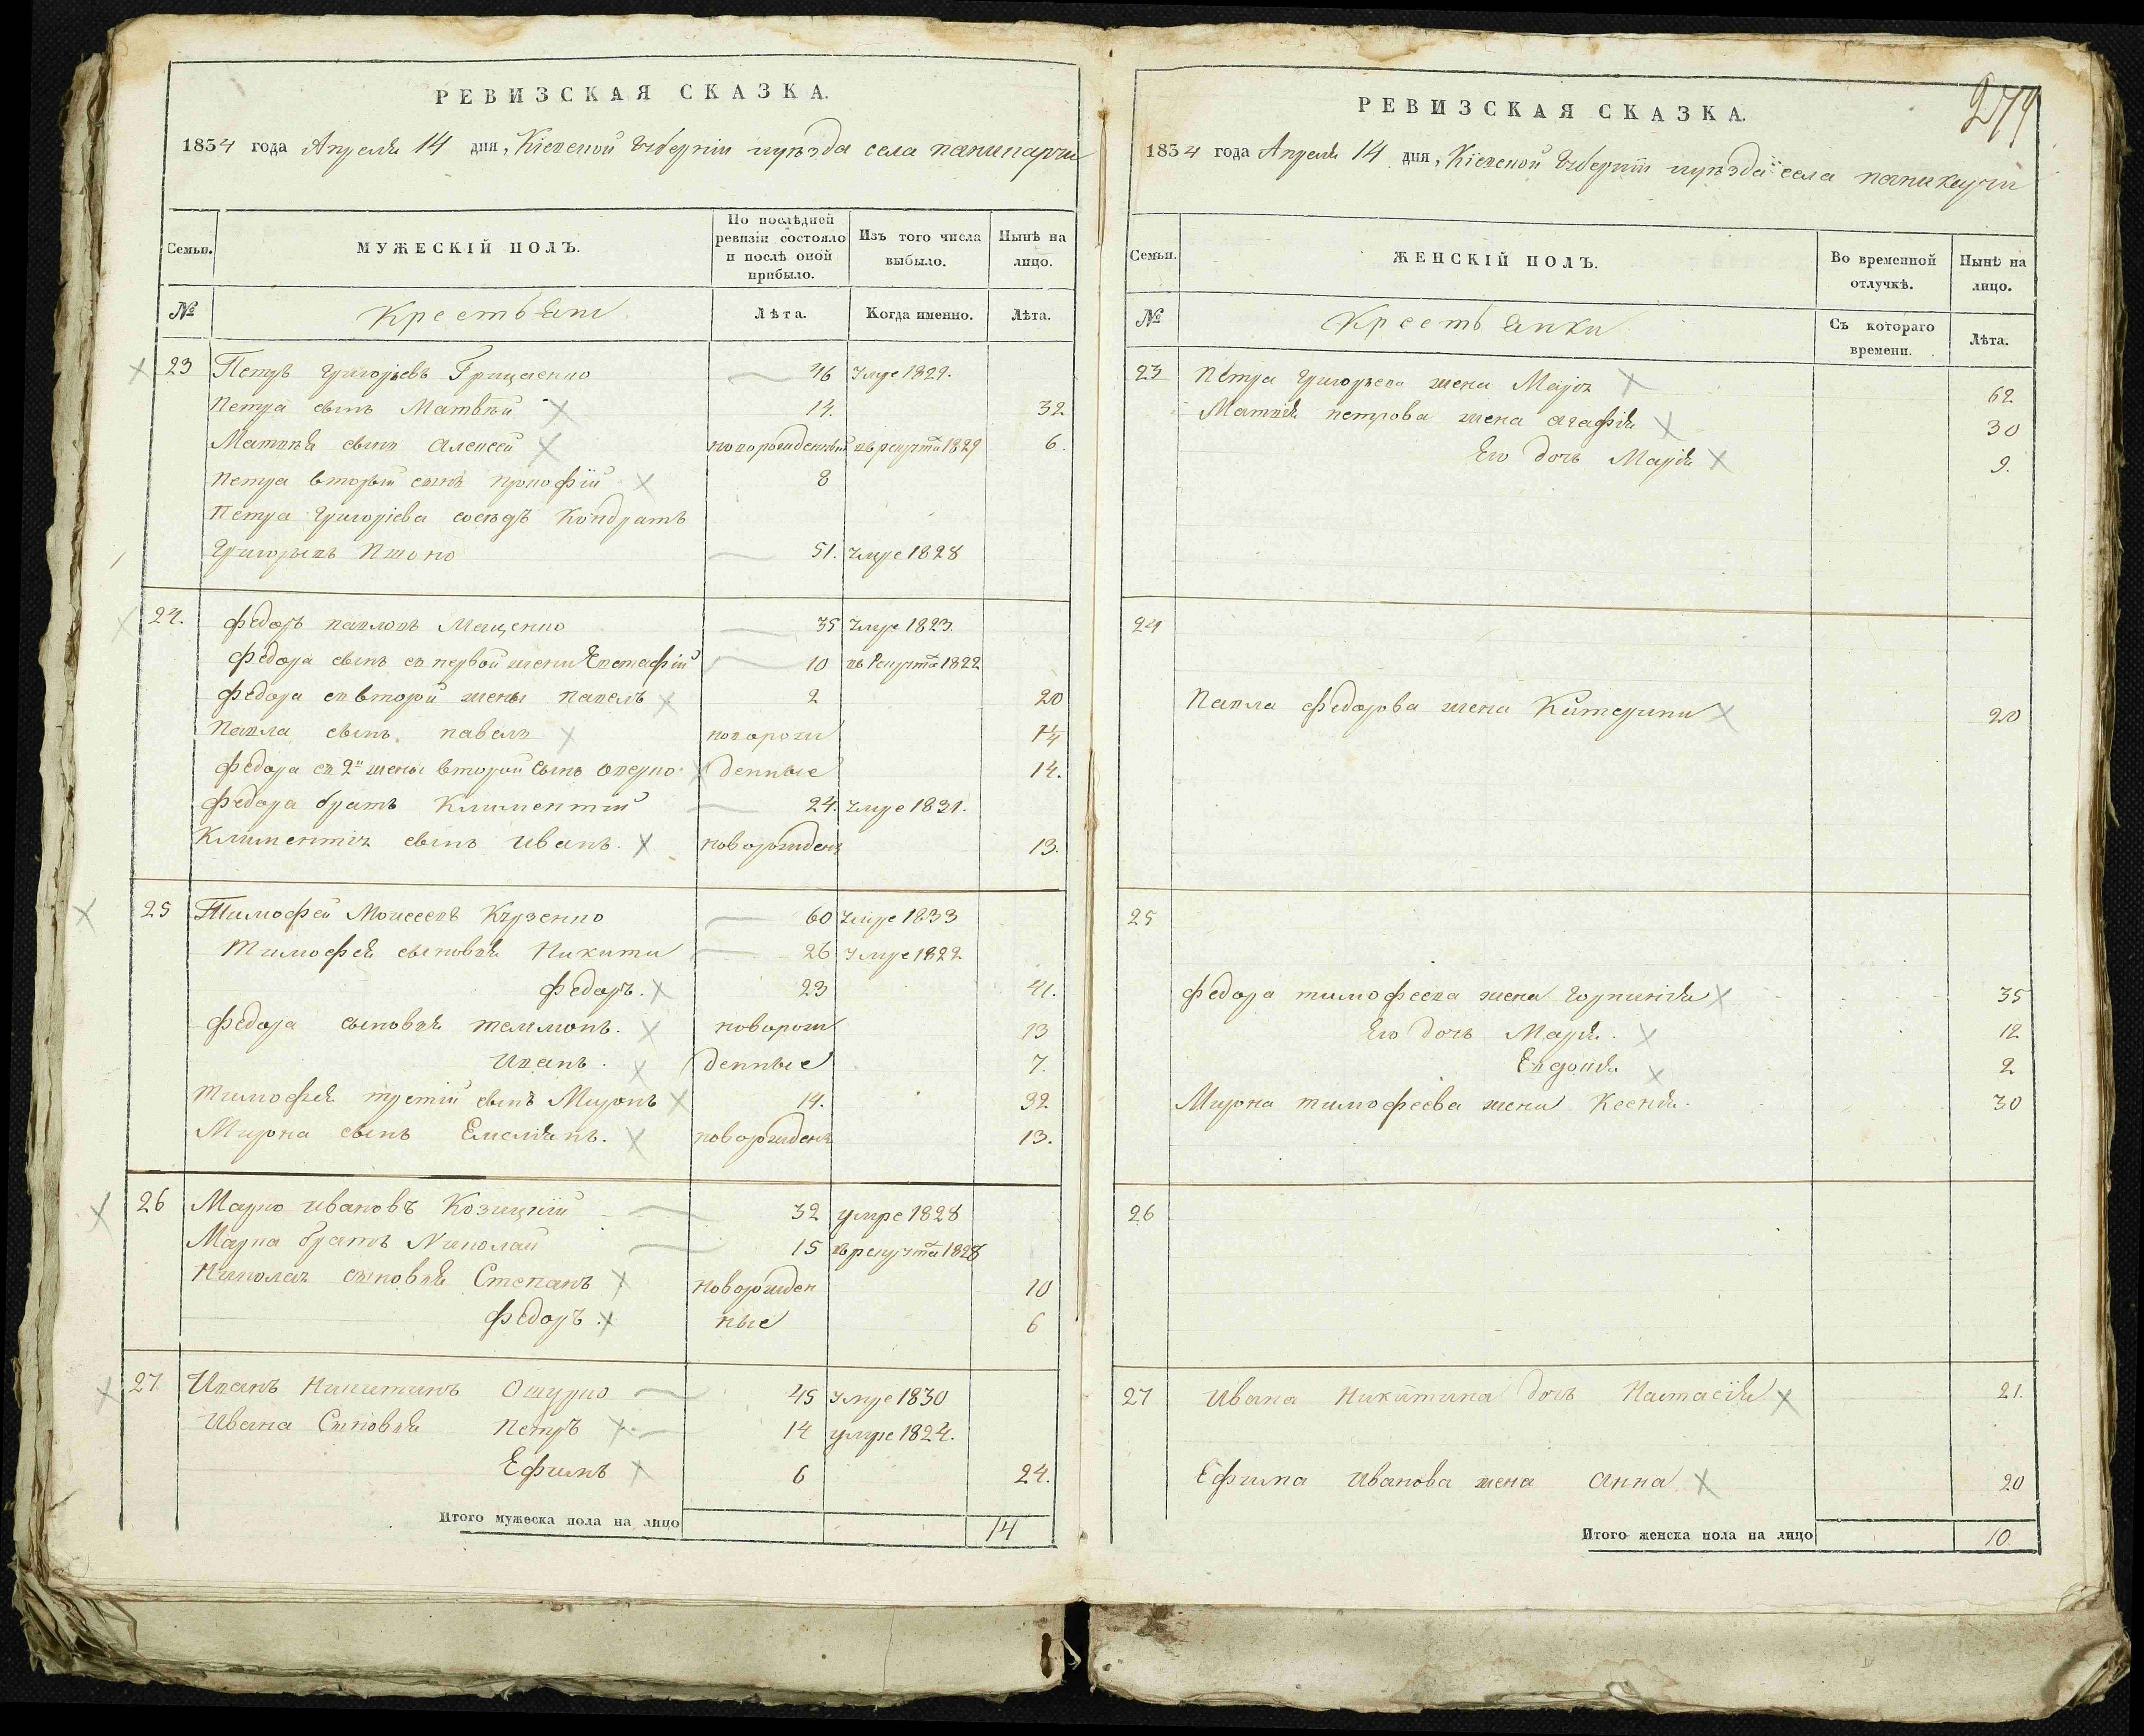 РЕВИЗСКАЯ СКАЗКА.
1834 года Апреля 14 дня, Кіевской Губерніи уѣзда села
Семьи.
МУЖЕСКІЙ ПОЛЪ.
По послѣдней ревизіи состояло и послѣ оной прибыло.
Изъ того числа выбыло.
Нынѣ на лицо.
№
Крестьяне
Лѣта.
Когда именно.
Лѣта.
23 Петръ Григорьевъ Грищенко 46 Умре 1829.
Петра сынъ Матвѣй 14. 32
Матвѣя сынъ Алексей новорожденный въ рекрута 1829 6.
Петра вторый сынъ прокофій 8
Петра Григоріева сосѣдъ Кондратъ
Григорьевъ Пшоно 51. Умре 1828
24. Федоръ павловъ Мащенко 35 Умре 1823.
Федора сынъ съ первой жены Евстафій 10 въ Рекрута 1822
Федора съ второй жены Павелъ 2 20
Павла сынъ павелъ новорож 1 1/4
Федора съ 2й жены второй сынъ Оверко денные 14.
Федора братъ Климентій 24. Умре 1831.
Климентія сынъ Иванъ. новорожден 13.
25 Тимофей Моисеевъ Кузенко 60 Умре 1833
Тимофея сыновья Никита 26 Умре 1822
Федоръ. 23 41.
Федора сыновья новорож 13
Иванъ. денные 7.
Тимофея третій сынъ Миронъ 14. 32
Мирона сынъ Емеліянъ. новорожден 13.
26 Марко Ивановъ Козицкій 32 умре 1828
Марка братъ Николай 15 въ рекрута 1828
Николая сыновья Степанъ новорожден 10
Федоръ ные 6
27. Иванъ Никитинъ Ошурко 45 Умре 1830
Ивана Сыновья Петръ 14 умре 1824.
Ефимъ 6 24.
Итого мужеска пола на лицо 14
279
РЕВИЗСКАЯ СКАЗКА.
1834 года Апреля 14 дня, Кіевской Губерніи уѣзда села
Семьи.
ЖЕНСКІЙ ПОЛЪ.
Во временной отлучкѣ.
Нынѣ на лицо.
№
Крестьянки
Съ котораго времени.
Лѣта.
23 Петра Григорьева жена Марія 62
Матвѣя петрова жена Агафія 30
Его дочь Марія 9.
24
Павла Федорова жена Катерина 20
25
Федора тимофеева жена Горпинія 35
Его дочь Марія. 12
Евдокія 2
Мирона тимофеева жена Ксенія. 30
26
27 Ивана Никитина дочь Настасія 21.
Ефима Иванова жена Анна 20
Итого женска пола на лицо 10.